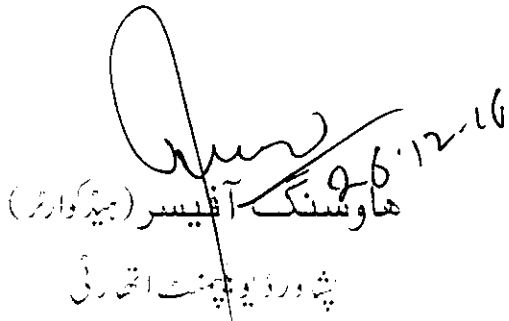 26.12.16
ھاؤسنگ آفیسر (ہیڈکوارٹر)
پشاور ڈیویلپمنٹ اتھارٹی